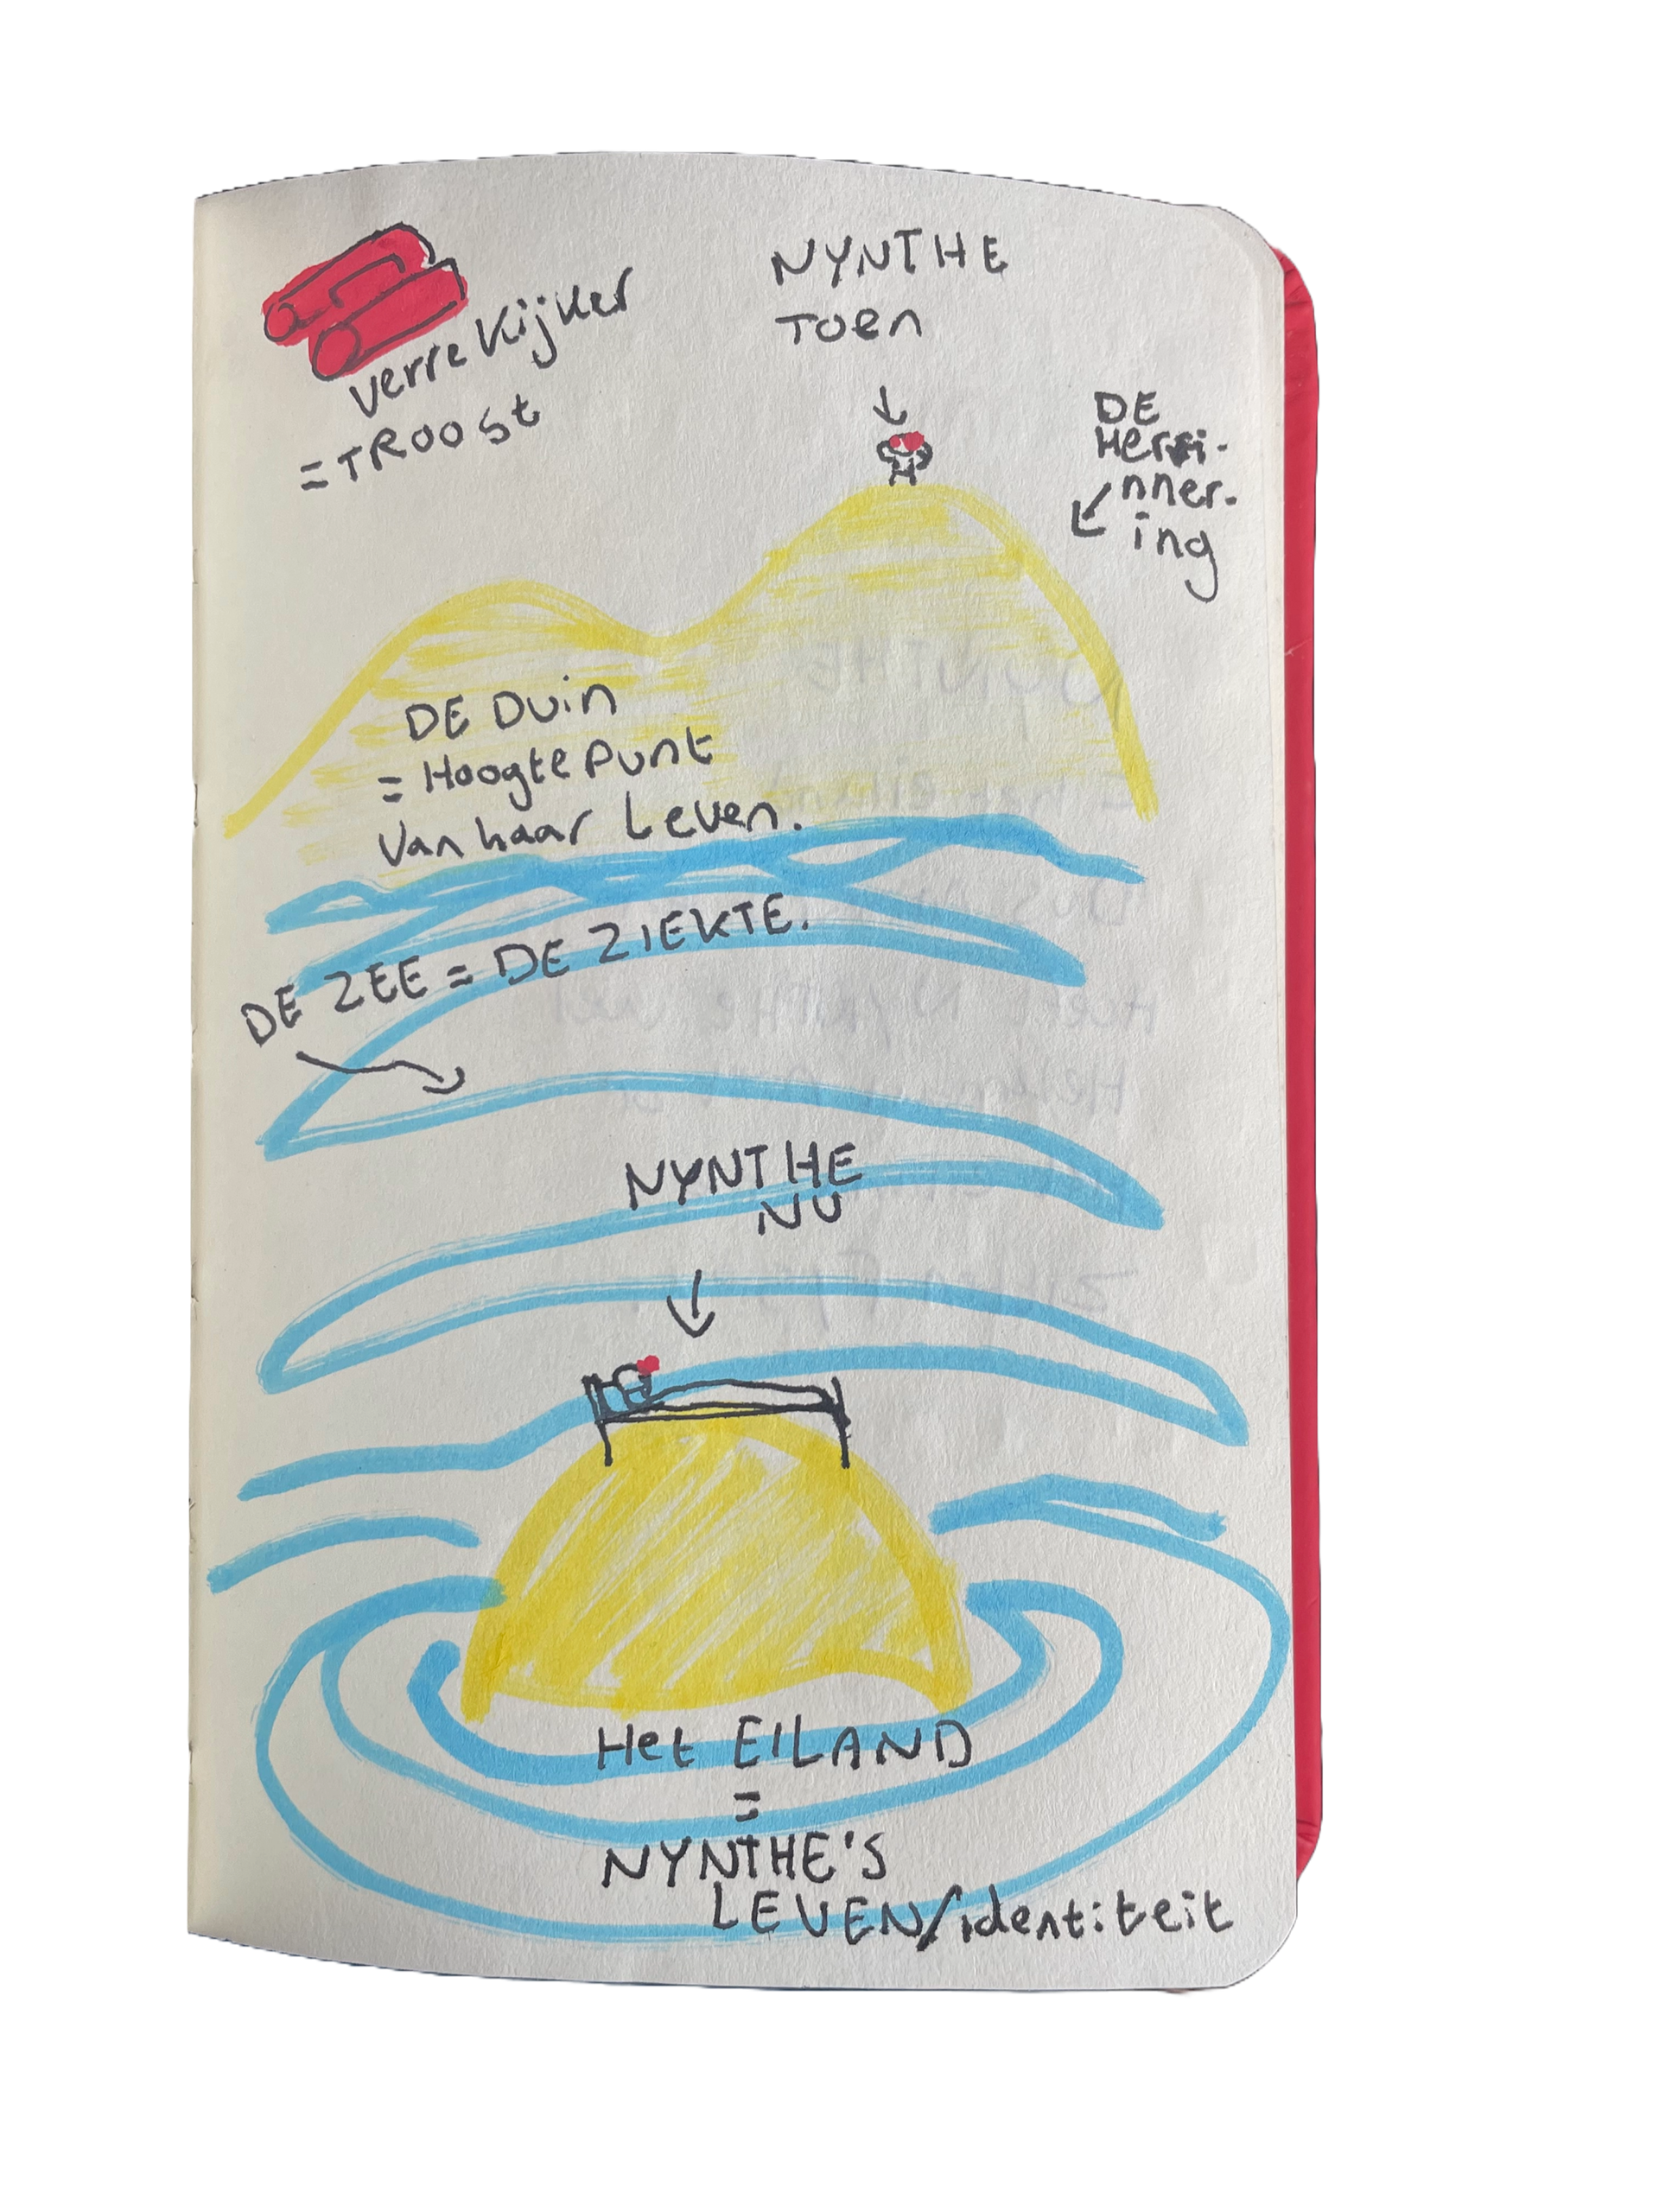 verrekijker
= TROOST
NYNTHE
TOEN
DE
Heri-
nner-
ing
DE Duin
= HoogtePunt
Van haar Leven.
DE ZEE = DE ZIEKTE.
NYNTHE
NU
Het EILAND
=
NYNTHE'S
LEVEN/identiteit